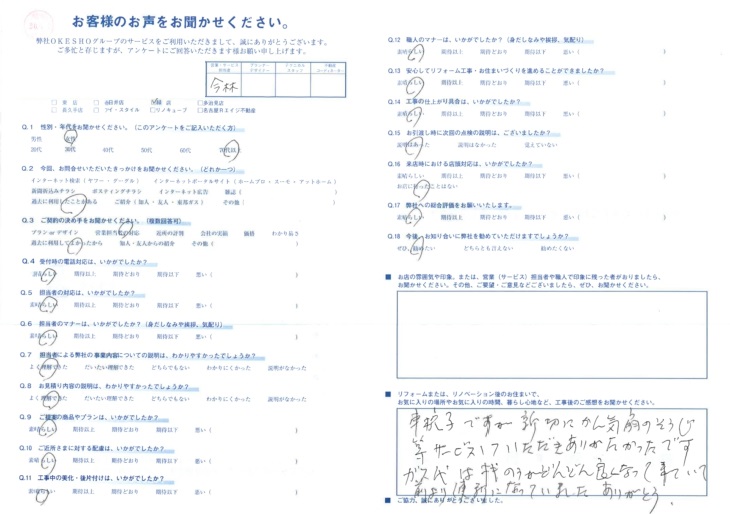 お客様のお声をお聞かせください。
弊社OKESHOグループのサービスをご利用いただきまして、誠にありがとうございます。
ご多忙と存じますが、アンケートにご回答いただきます様お願い申し上げます。
今林
Q.1 性別・年代をお聞かせください。(このアンケートをご記入いただく方)
男性 女性
20代 30代 40代 50代 60代 70代以上
Q.2 今回、お問合せいただいたきっかけをお聞かせください。(どれか一つ)
インターネット検索(ヤフー・グーグル) インターネットポータルサイト(ホームプロ・スーモ・アットホーム)
新聞折込みチラシ ポスティングチラシ インターネット広告 雑誌( )
過去に利用したことがある ご紹介(知人・友人・東邦ガス) その他( )
Q.3 ご契約の決め手をお聞かせください。(複数回答可)
プランorデザイン 営業担当者の対応 近所の評判 会社の実績 価格 わかり易さ
過去に利用してよかったから 知人・友人からの紹介 その他( )
Q.4 受付時の電話対応は、いかがでしたか?
素晴らしい 期待以上 期待どおり 期待以下 悪い( )
Q.5 担当者の対応は、いかがでしたか?
素晴らしい 期待以上 期待どおり 期待以下 悪い( )
Q.6 担当者のマナーは、いかがでしたか?(身だしなみや挨拶、気配り)
素晴らしい 期待以上 期待どおり 期待以下 悪い( )
Q.7 担当者による弊社の事業内容についての説明は、わかりやすかったでしょうか?
よく理解できた だいたい理解できた どちらでもない わかりにくかった 説明がなかった
Q.8 お見積り内容の説明は、わかりやすかったでしょうか?
よく理解できた だいたい理解できた どちらでもない わかりにくかった 説明がなかった
Q.9 ご提案の商品やプランは、いかがでしたか?
素晴らしい 期待以上 期待どおり 期待以下 悪い( )
Q.10 ご近所さまに対する配慮は、いかがでしたか?
素晴らしい 期待以上 期待どおり 期待以下 悪い( )
Q.11 工事中の美化・後片付けは、いかがでしたか?
素晴らしい 期待以上 期待どおり 期待以下 悪い( )
Q.12 職人のマナーは、いかがでしたか?(身だしなみや挨拶、気配り)
素晴らしい 期待以上 期待どおり 期待以下 悪い( )
Q.13 安心してリフォーム工事・お住まいづくりを進めることができましたか?
素晴らしい 期待以上 期待どおり 期待以下 悪い( )
Q.14 工事の仕上がり具合は、いかがでしたか?
素晴らしい 期待以上 期待どおり 期待以下 悪い( )
Q.15 お引渡し時に次回の点検の説明は、ございましたか?
説明はあった 説明はなかった 覚えていない
Q.16 来店時における店頭対応は、いかがでしたか?
素晴らしい 期待以上 期待どおり 期待以下 悪い( )
お店に行ったことはない
Q.17 弊社への総合評価をお願いいたします。
素晴らしい 期待以上 期待どおり 期待以下 悪い( )
Q.18 今後、お知り合いに弊社を勧めていただけますでしょうか?
ぜひ、勧めたい どちらとも言えない 勧めたくない
■ お店の雰囲気や印象、または、営業(サービス)担当者や職人で印象に残った者がおりましたら、
お聞かせください。その他、ご要望・ご意見などございましたら、ぜひ、お聞かせください。
■ リフォームまたは、リノベーション後のお住まいで、
お気に入りの場所やお気に入りの時間、暮らし心地など、工事後のご感想をお聞かせください。
ですが 親切にかん気扇のそうじ
等サービスしていただきありがたかったです
ガス代は機のうがどんどん良くなって来ていて
前より便利になっていました ありがとう。
■ ご協力、誠にありがとうございました。